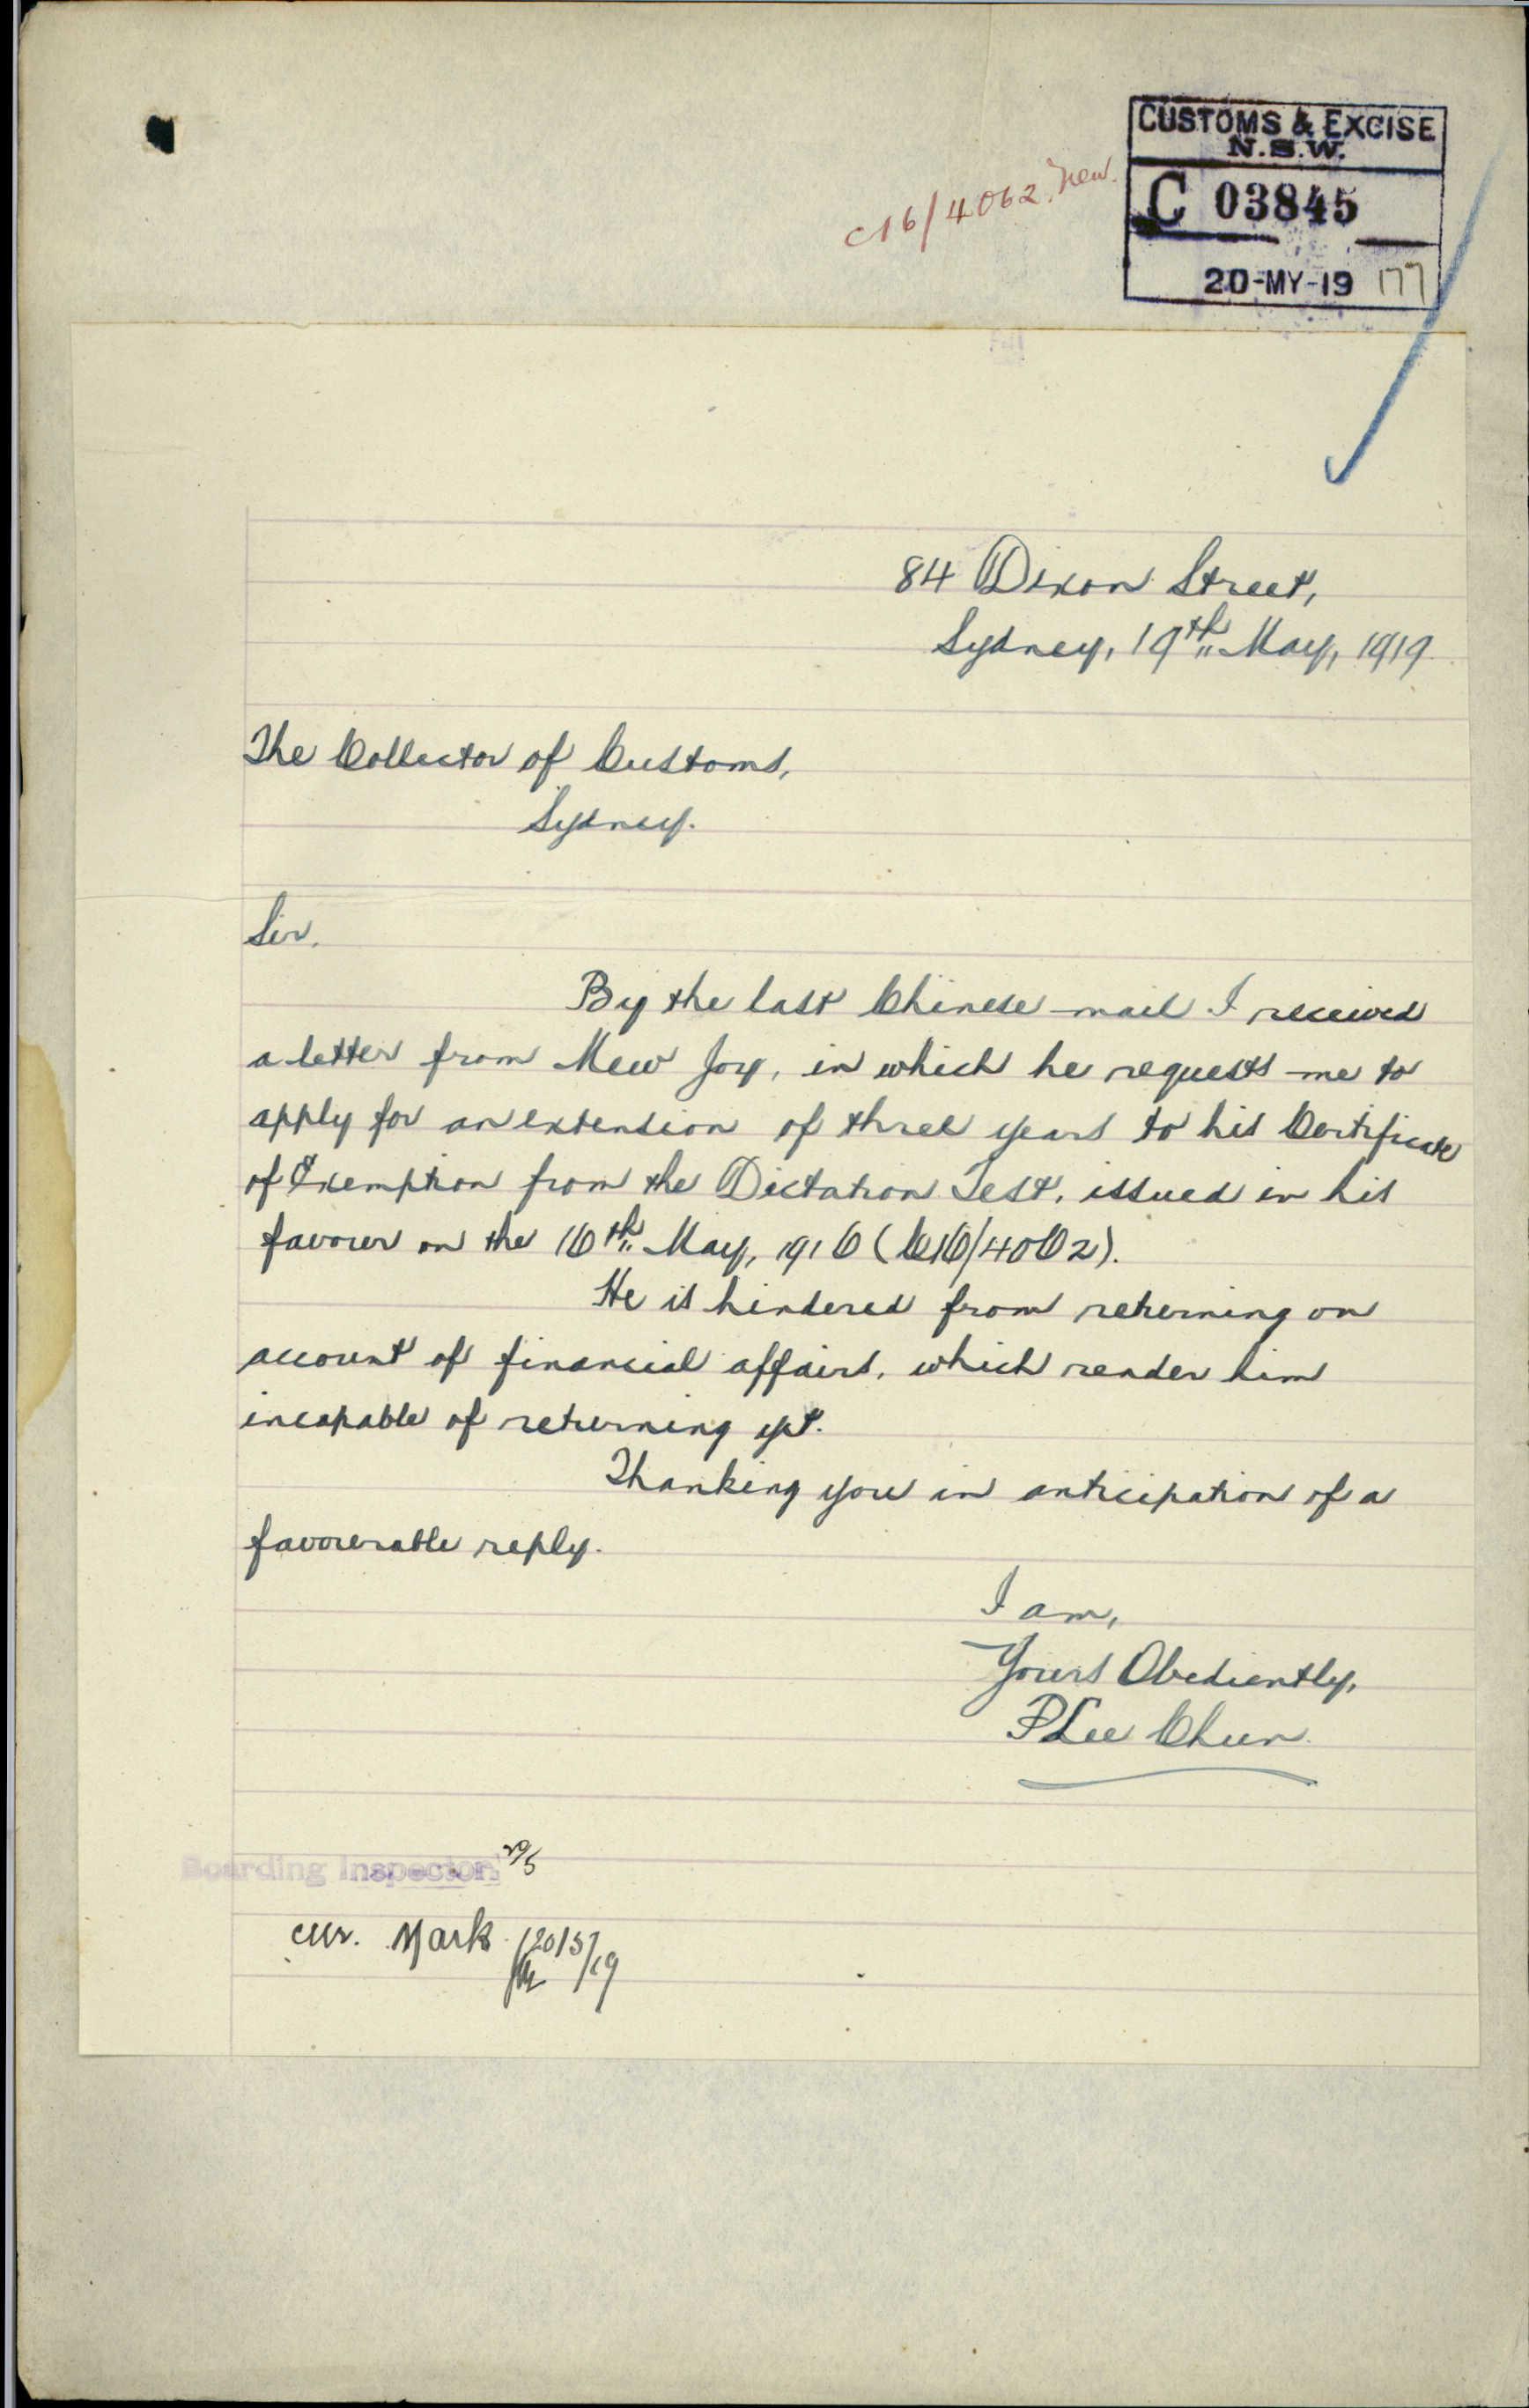 CUSTOMS & EXCISE
N.S.W.
C 03845
20-MY-19 177
C16/4062. new.
84 Dixon Street,
Sydney, 19th May, 1919
The Collector of Customs,
Sydney.
Sir,
By the last Chinese mail I received
a letter from Mew Joy, in which he requests me to
apply for an extension of three years to his Certificate
of Exemption from the Dictation Test, issued in his
favour on the 16th May, 1916 (C16/4062).
He is hindered from returning on
account of financial affairs, which render him
incapable of returning yet.
Thanking you in anticipation of a
favourable reply.
I am,
Yours Obediently,
P Lee Chun
Boarding Inspector 20/5
Mark 20/5/19